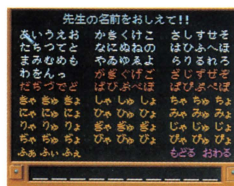 先生の名前をおしえて!!
あいうえお かきくけこ さしすせそ
たちつてと なにぬねの はひふへほ
まみむめも やゐゆゑよ らりるれろ
わをんっ がぎぐげご ざじずぜぞ
だぢづでど ばびぶべぼ ぱぴぷぺぽ
ぎゃ ぎゅ ぎょ しゃ しゅ しょ ちゃ ちゅ ちょ
にゃ にゅ にょ ひゃ ひゅ ひょ みゃ みゅ みょ
りゃ りゅ りょ ぎゃ ぎゅ ぎょ じゃ じゅ じょ
ぢゃ ぢゅ ぢょ びゃ びゅ びょ ぴゃ ぴゅ ぴょ
ふぁ ふぃ ふぇ もどる おわる